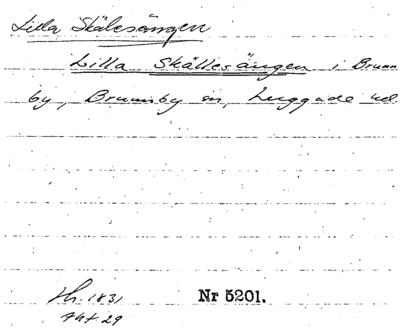 Lilla Skälesängen
Lilla Skällesängen i Brunn
by, Brunnby sn, Luggude hd.
Hs. 1831 Nr 5201.
Akt 29